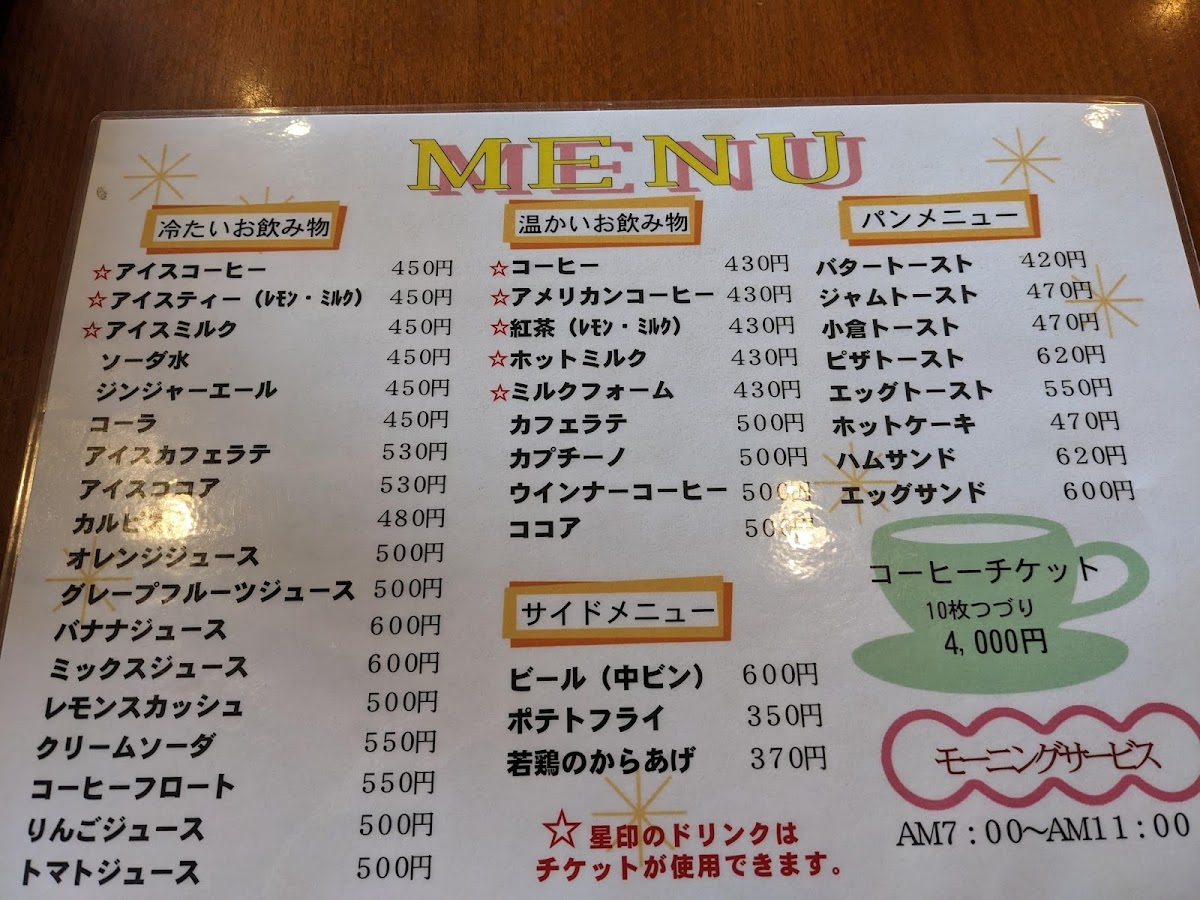 MENU
冷たいお飲み物
☆アイスコーヒー 450円
☆アイスティー（ﾚﾓﾝ・ﾐﾙｸ） 450円
☆アイスミルク 450円
ソーダ水 450円
ジンジャーエール 450円
コーラ 450円
アイスカフェラテ 530円
アイスココア 530円
カルピス 480円
オレンジジュース 500円
グレープフルーツジュース 500円
バナナジュース 600円
ミックスジュース 600円
レモンスカッシュ 500円
クリームソーダ 550円
コーヒーフロート 550円
りんごジュース 500円
トマトジュース 500円
温かいお飲み物
☆コーヒー 430円
☆アメリカンコーヒー 430円
☆紅茶（ﾚﾓﾝ・ﾐﾙｸ） 430円
☆ホットミルク 430円
☆ミルクフォーム 430円
カフェラテ 500円
カプチーノ 500円
ウインナーコーヒー 500円
ココア 500円
サイドメニュー
ビール（中ビン） 600円
ポテトフライ 350円
若鶏のからあげ 370円
☆星印のドリンクは
チケットが使用できます。
パンメニュー
バタートースト 420円
ジャムトースト 470円
小倉トースト 470円
ピザトースト 620円
エッグトースト 550円
ホットケーキ 470円
ハムサンド 620円
エッグサンド 600円
コーヒーチケット
10枚つづり
4,000円
モーニングサービス
AM7:00～AM11:00